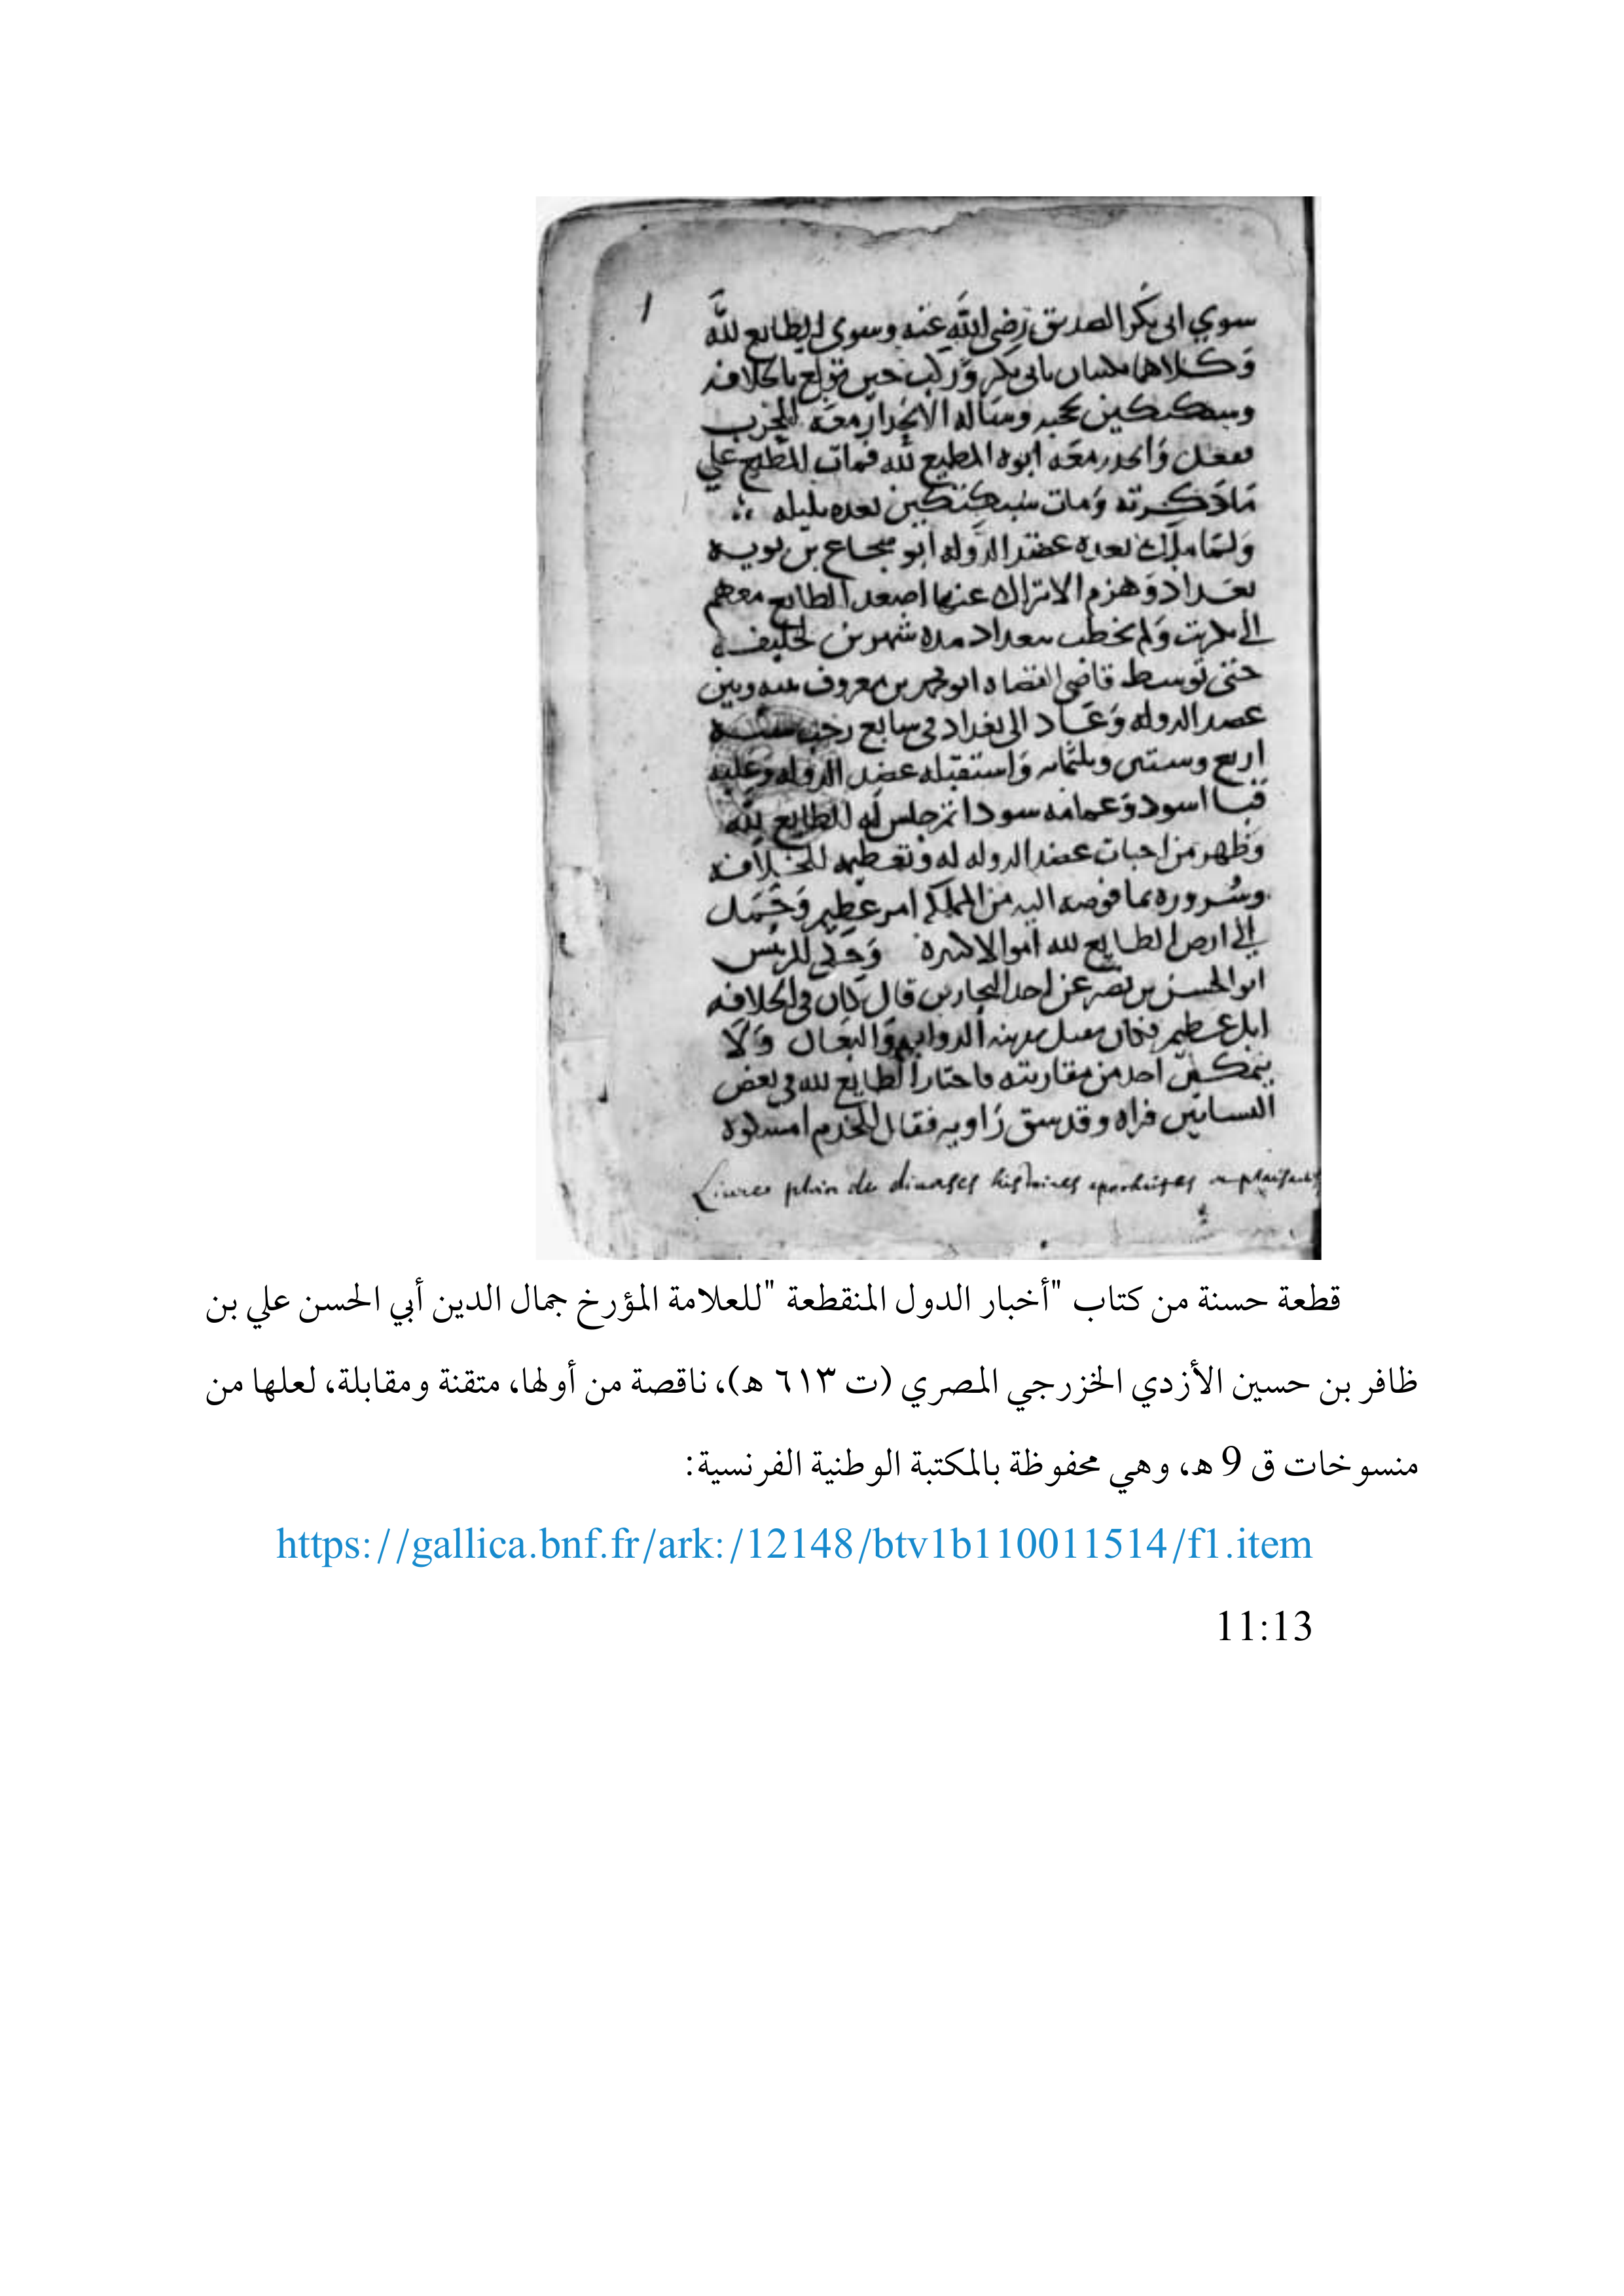 ١
سوي ابى بكر الصديق رضى الله عنه وسوى الطايع لله
وكلاهما مكنيان بابى بكر وركب حين بويع بالخلافه
وسبكتكين بحجبه وساله الانحدار معه للحرب
ففعل وانحدر معه ابوه المطيع لله فمات المطيع علي
ماذكرته ومات سبكتكين بعده بليله
ولما ملك بعده عضد الدوله ابو شجاع بن بويه
بغداد وهزم الاتراك عنها اصعد الطايع معهم
الى تكريت ولم يخطب ببغداد مده شهرين لخليفه
حتى توسط قاضى القضاه ابو محمد بن معروف بينه وبين
عضد الدوله وعاد الى بغداد فى سابع رجب سنه
اربع وستين وثلثمايه واستقبله عضد الدوله وعليه
قبا اسود وعمامه سودا ثم جلس له الطايع لله
وظهر من عضد الدوله له وتعظيمه للخلافه
وسروره بما فوضه اليه من المملكه امر عظيم وحمل
الى الطايع لله اموالا كثيرة وحكى الرئيس
ابو الحسن بن نصر عن احد قال كان فى الخلافه
ابل عظيم فكان يقتل الدواب والبغال ولا
يتمكن احد من مقاربته فاجتاز الطايع لله فى بعض
البساتين فراه وقد شق راويه فقال للخدم امسكوه
Livres plain de diverses histoires
قطعة حسنة من كتاب "أخبار الدول المنقطعة "للعلامة المؤرخ جمال الدين أبي الحسن علي بن
ظافر بن حسين الأزدي الخزرجي المصري (ت ٦١٣ هـ)، ناقصة من أولها، متقنة ومقابلة، لعلها من
منسوخات ق 9 هـ، وهي محفوظة بالمكتبة الوطنية الفرنسية:
https://gallica.bnf.fr/ark:/12148/btv1b110011514/f1.item
11:13